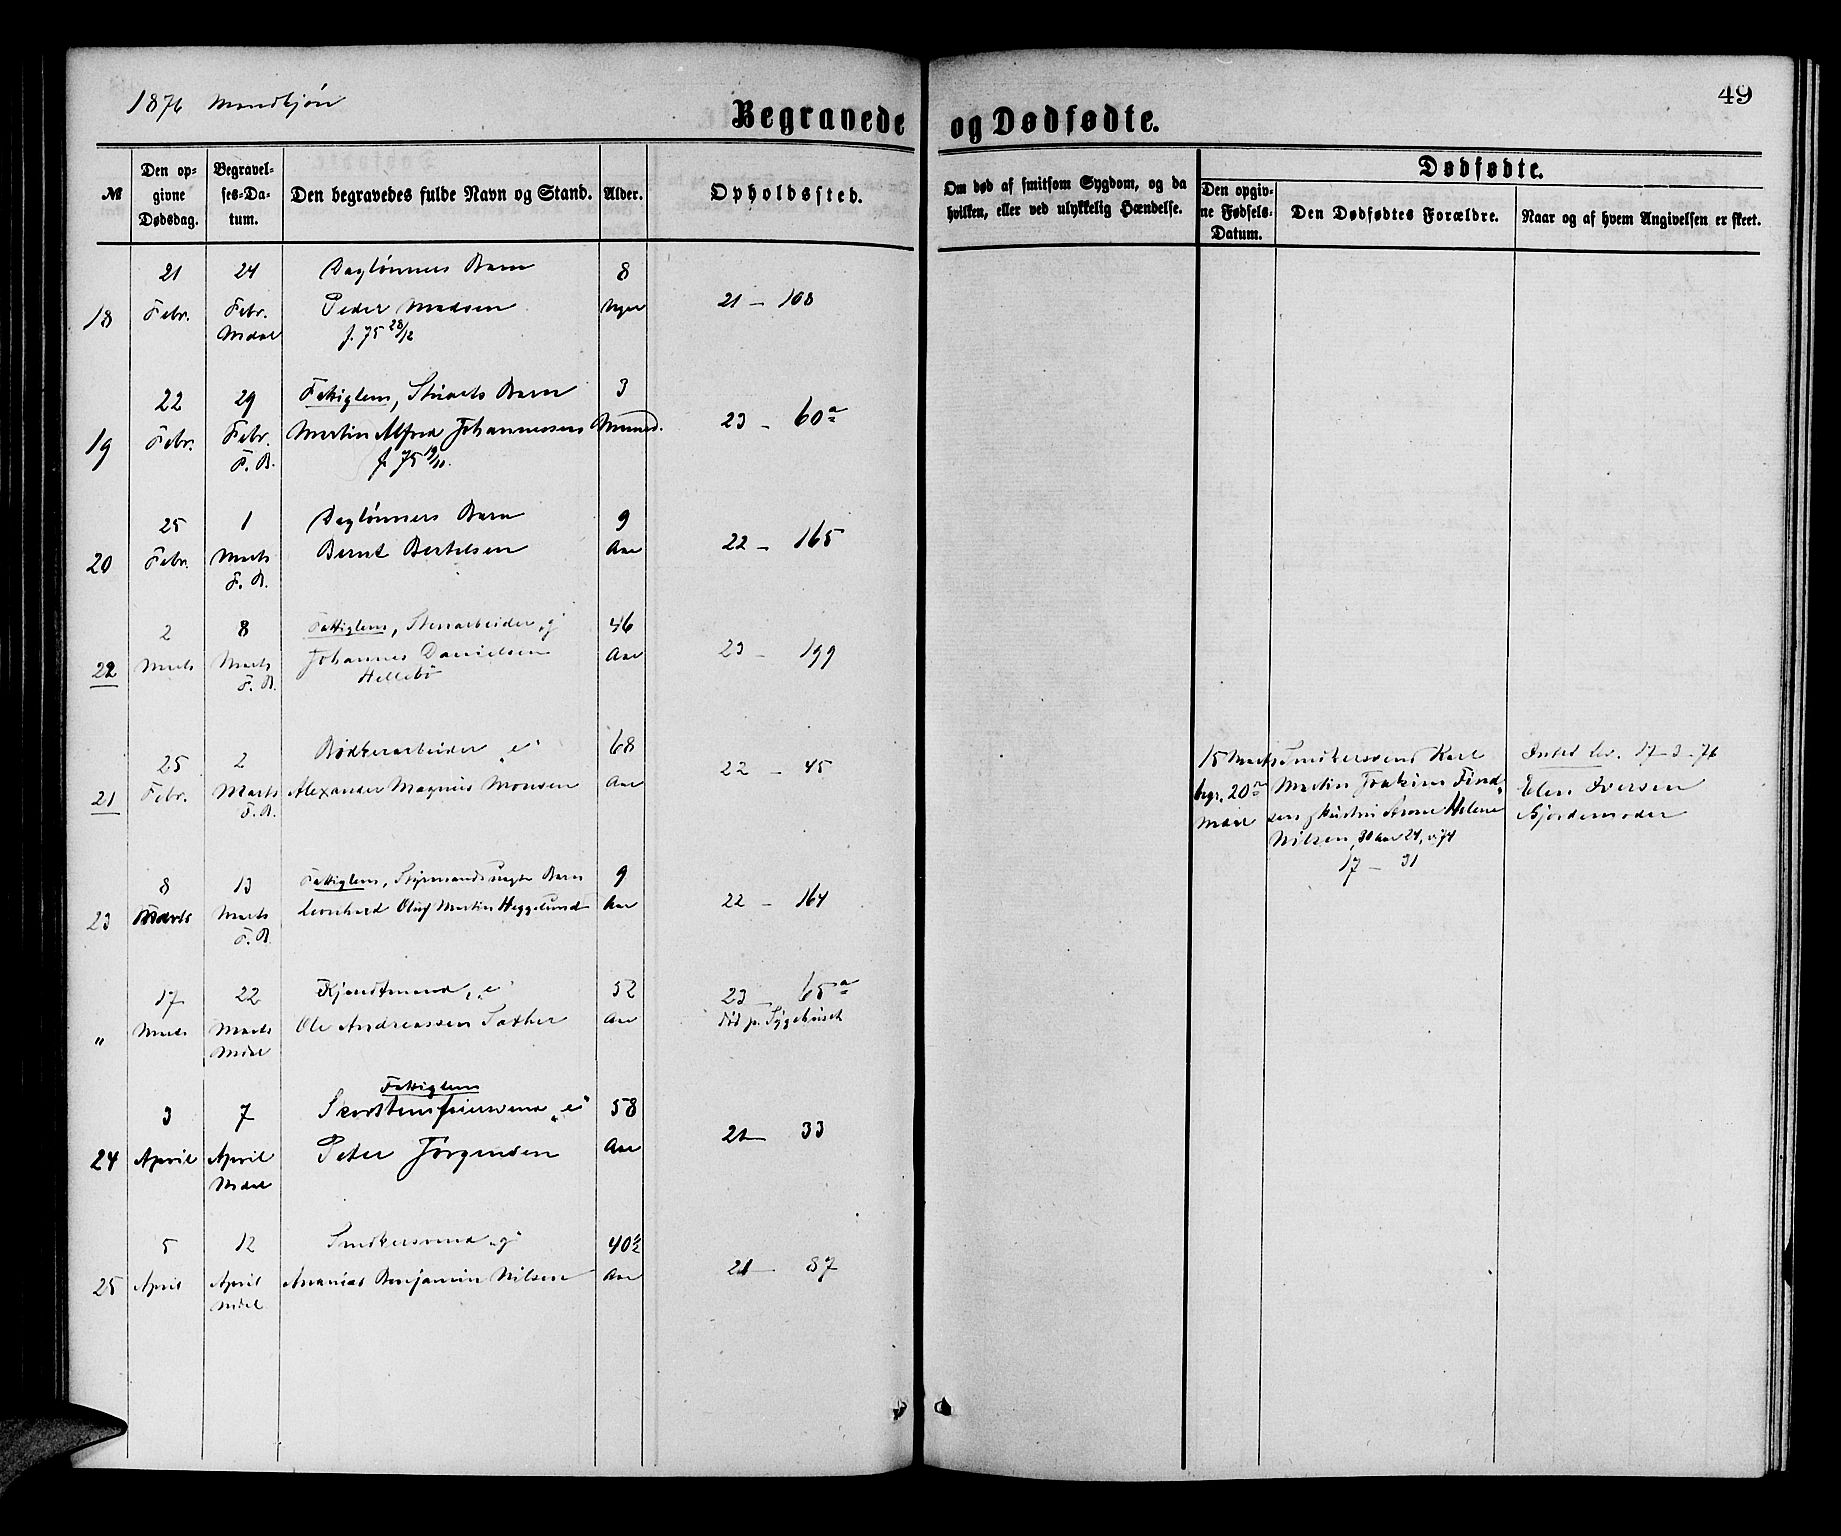 1876 Mandkjön
49
Begravede og Dødfødte.
№
Den opgivne Dødsdag.
Begravelses-Datum.
Den begravedes fulde Navn og Stand.
Alder.
Opholdssted.
Om død af smitsom Sygdom, og da hvilken, eller ved ulykkelig Hændelse.
Dødfødte.
Den opgivne Fødsels-Datum.
Den Dødfødtes Forældre.
Naar og af hvem Angivelsen er skeet.
21 24 Daglönners Barn 8
18 Febr. Febr. Peder Madsen Uger 21 - 108
Mdal f. 75 28/12
22 29 Fattiglem, Stuarts Barn 3
19 Febr. Febr. Martin Alfred Johannessen Maaned. 23 - 60a
F. B. f. 75 19/11.
25 1 Daglönners Barn 9
20 Febr. Marts Bernt Bertelsen Aar 22 - 165
F. B.
2 8 Fattiglem, Stenarbeider, g 46
22 Marts Marts Johannes Danielsen Aar 23 - 199
F. B. Hellebö
25 2 Bødkerarbeider "e" 68
21 Febr. Marts Alexander Magnus Monsen Aar 22 - 45
F. B.
15 Marts Smedkersvend Karl
begr. 20de Martin Joakim
Mdal Helene
Nilsen, 30 Aar 24,
17 - 31
Anled lev. 17-3-76
Elen Iversen
Gjordemoder
8 13 Fattiglem, Styrmands Barn 9
23 Marts Marts Leonhard Oluf Martin Heggelund Aar 22 - 164
F. B.
17 22 "e" 52 23 - 65a
" Marts Marts Ole Andreassen Sæther Aar död p. Sygehuset
Mdal
Fattiglem
3 7 Skorstensfeiersvend "e" 58
24 April April Peter Jörgensen Aar 21 - 33
Mdal
5 12 Snedkersvend "g" 40½
25 April April Ananias Benjamin Nilsen Aar 21 - 87
Mdal